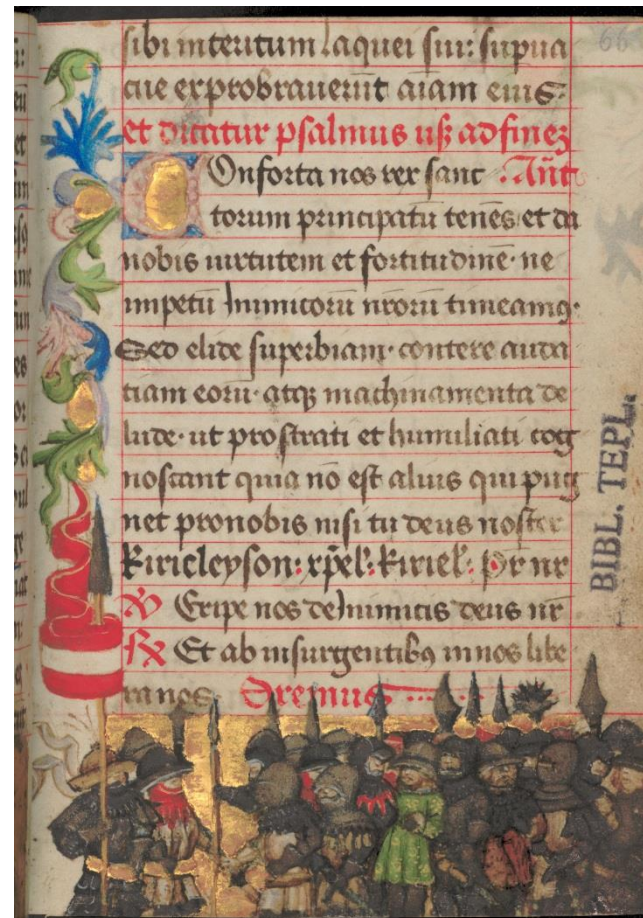 66
sibi interitum laquei sui: supua
cue exprobrauerūt aīam eius:
et dicatur psalmus usꝫ ad finez
Conforta nos rex sanc Añt
torum principatū tenēs et da
nobis uirtutem et fortitudinē· ne
impetū inimicorū nrorū timeamꝯ·
Sed elide superbiam· contere auda
tiam eorū· atqꝫ machinamenta de
lude· ut prostrati et humiliati cog
noscant quia nō est alius qui pug
net pro nobis nisi tu deus noster
Kirieleyson: xp̄el: Kiriel: Pr nr
℣ Eripe nos de inimicis deus nr
℟ Et ab insurgentibꝯ in nos libe
ra nos Oremus
BIBL. TEPL.